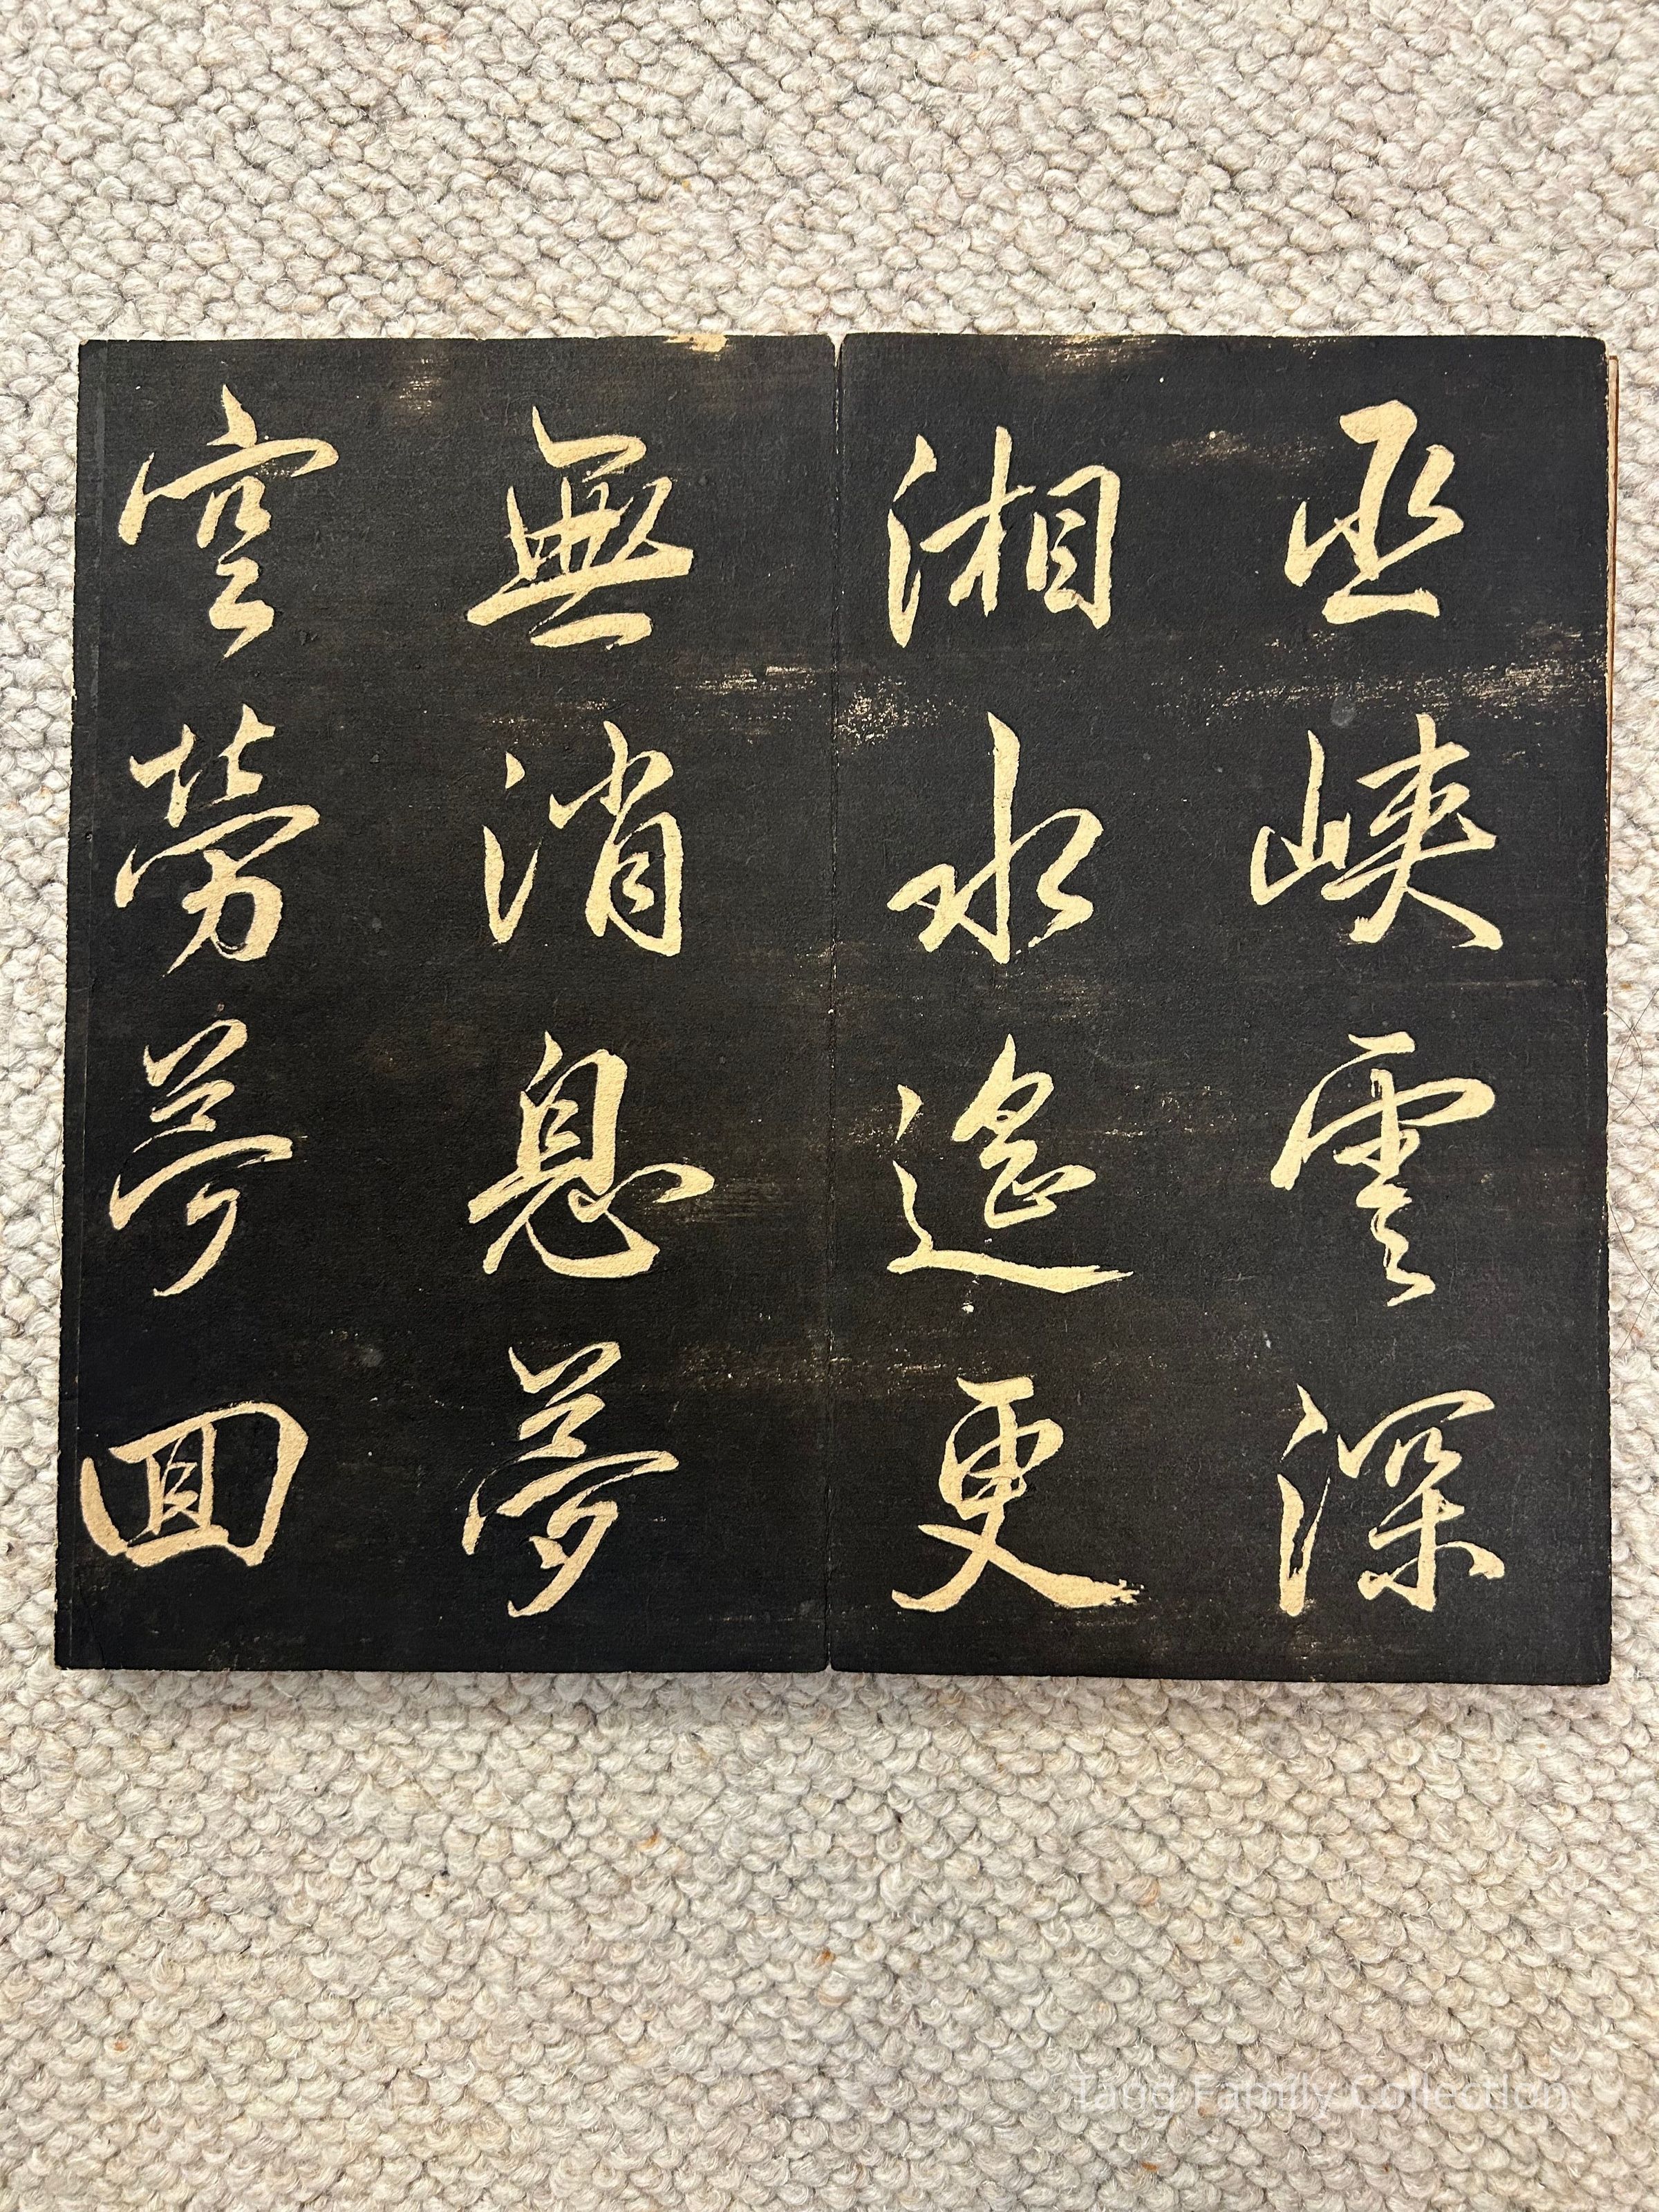 巫峽雲深
湘水遙更
無消息夢
空勞夢回
Tang Family Collection